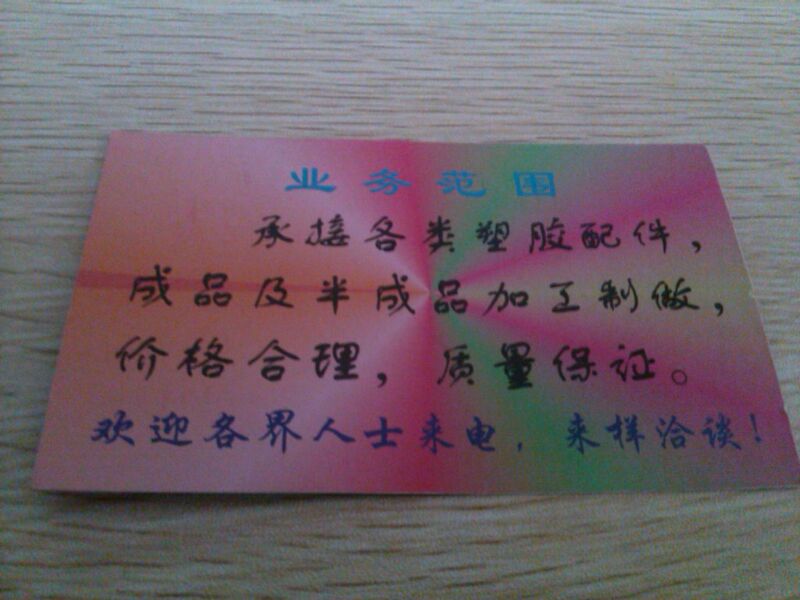 业务范围
承接各类塑胶配件，
成品及半成品加工制做，
价格合理，质量保证。
欢迎各界人士来电，来样洽谈！